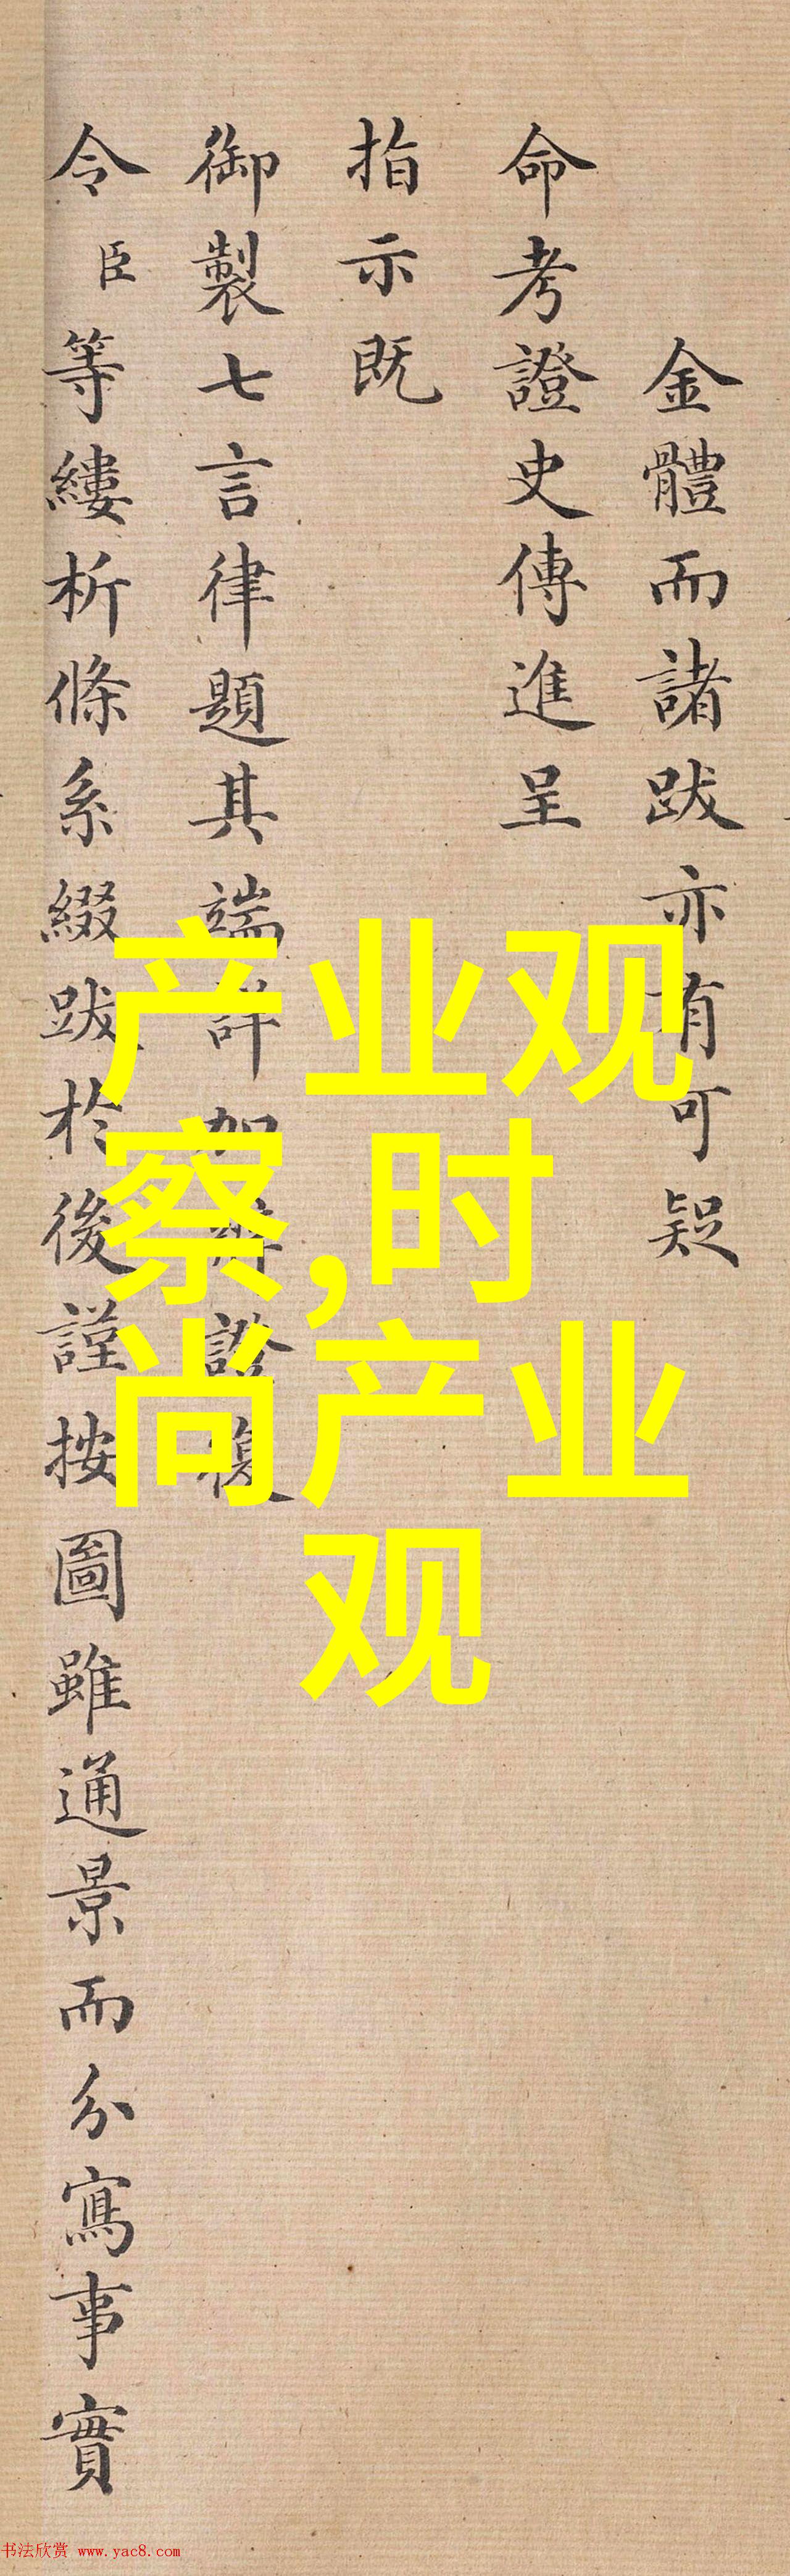 金體而諸跋亦有可疑
命考證史傳進呈
指示既
御製七言律題其端詳加辨證復
令臣等縷析條系綴跋於後謹按圖雖通景而分寫事實
产业观
察,时
尚产业
观
书法欣赏 www.yac8.com